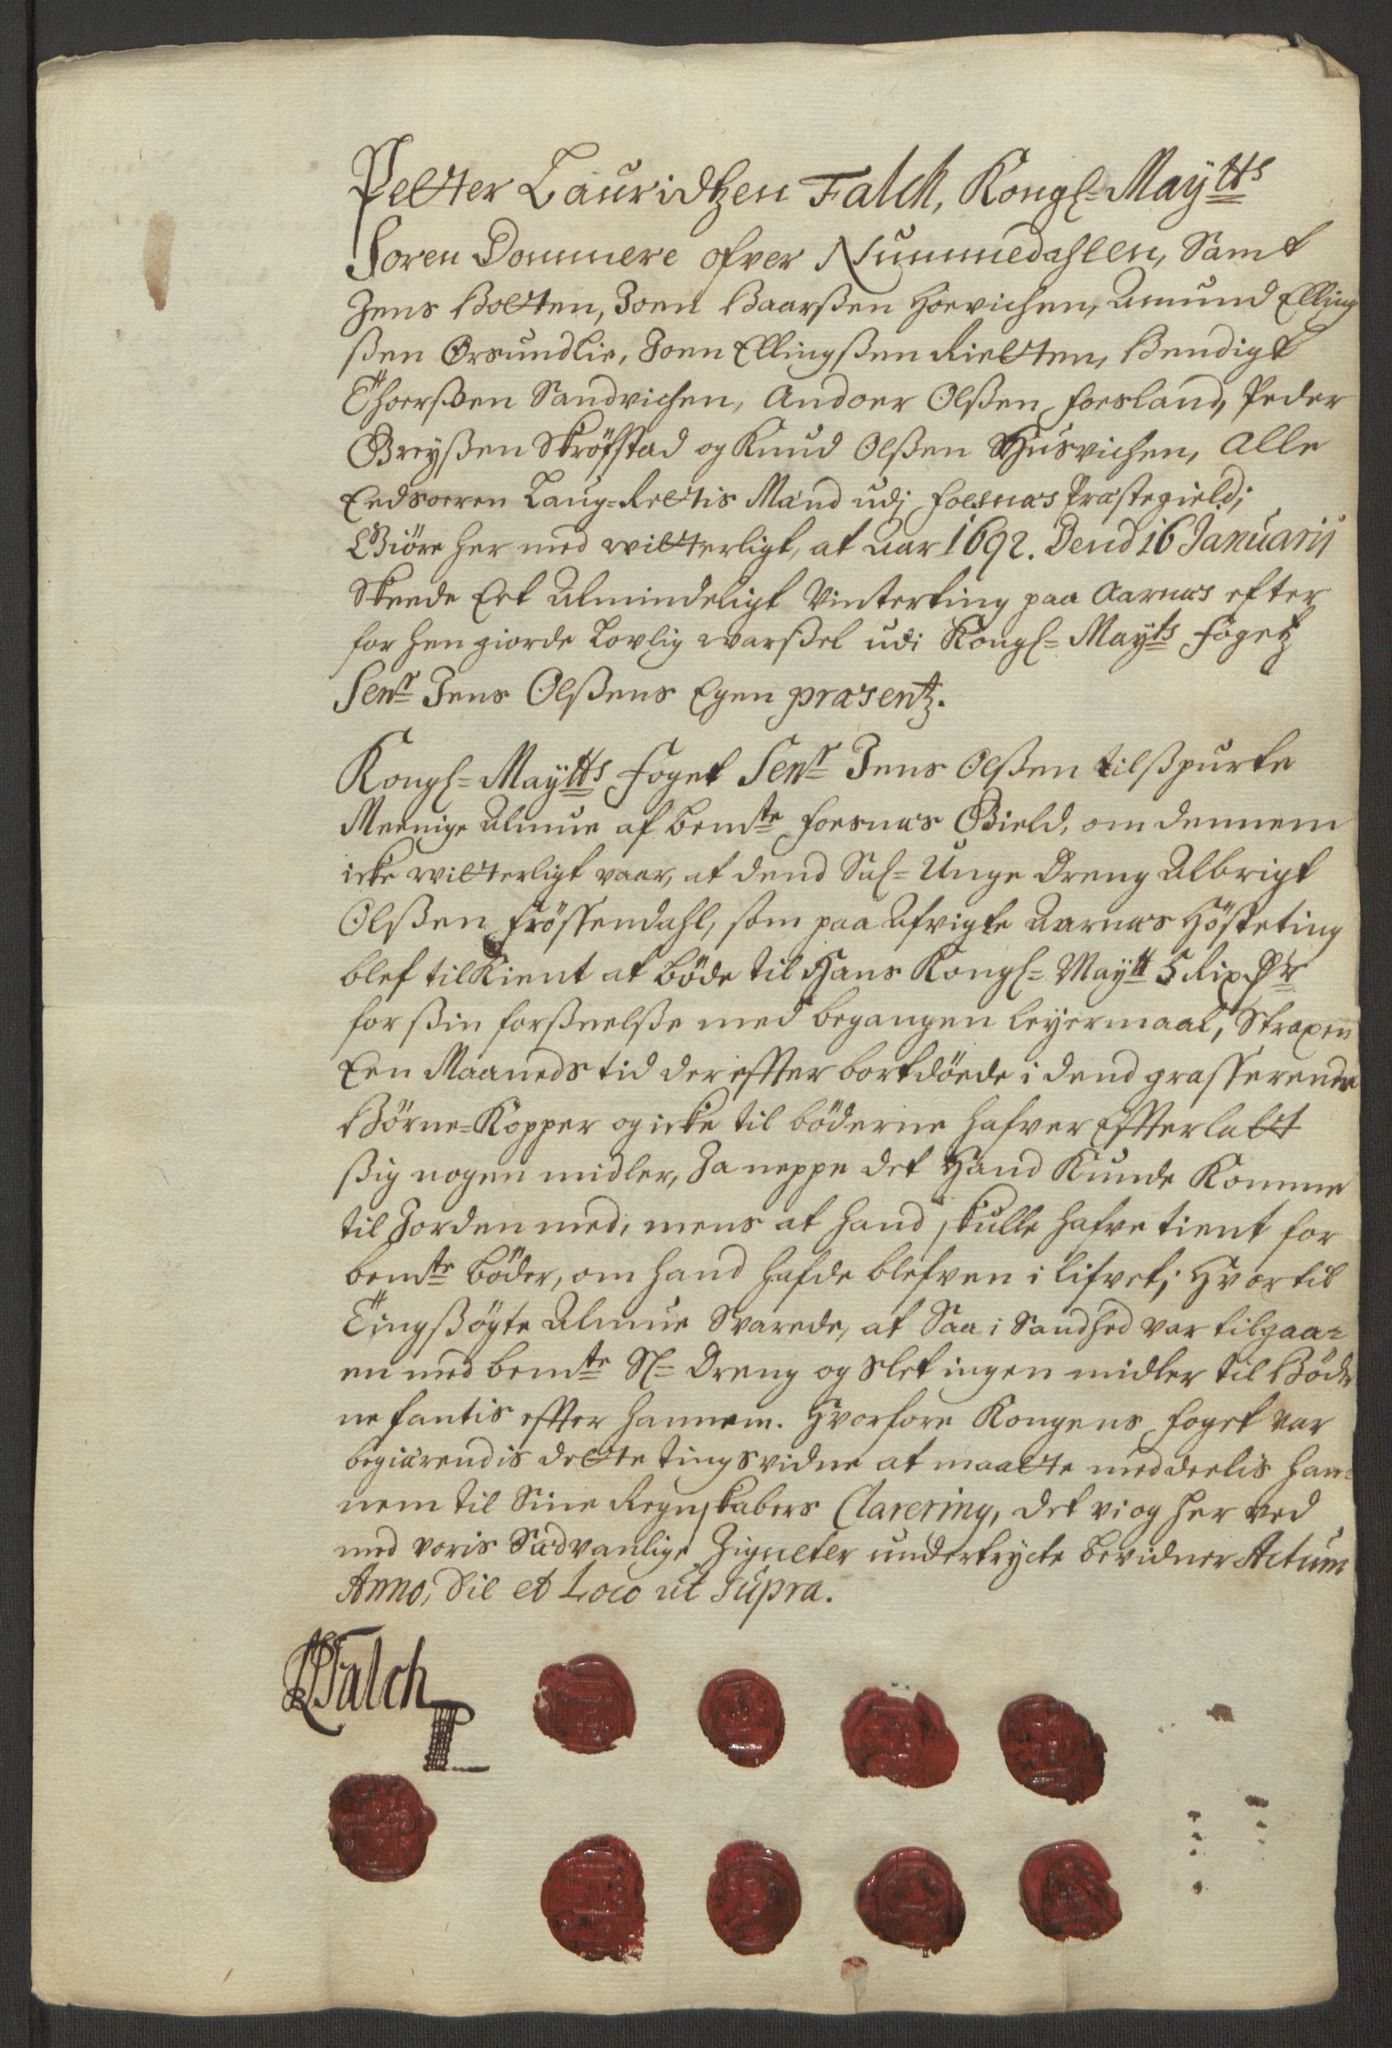 Petter Lauridtzen Falch, Kongl= Maÿtts
Soren Dommere ofver Nummedahlen, Samt
Jens Botten, Joen Baarßen Hoevichen, Amund Elling
ßen Orsundlie, Joen Ellingßen Rietten, Bendigt
Thoerßøen Sandvichen, Andoer Olßen Foesland, Peder
Greÿßen Skröfstad og Knud Olßen Husvichen, Alle
Eedsoeren Laug=Rettis Mænd udj Foesnæs Præstegield;
Giöre her med witterligt, at aar 1692. Dend 16 Januarij
Skeede Eet Almindeligt Vinterting paa Aarnæs efter
for hen giorde Lovlig warßel udi Kongl= Maÿts Fogetz
Senr Jens Olßens Egen præsentz.
Kongl= Maÿtts Foget Senr Jens Olßen tilßpurte
Meenige Almue af bemte Foesnæs Gield, om dennem
icke witterligt vaar, at dend Sal= Unge Dreng Albrigt
Olßen Frössendahl, som paa Afvigte Aarnæs Hösteting
blef tilkient at böde til Hans Kongl= Maÿtt 5 Rixdr
for ßin forßeelße med begangen leyermaal, Strax en
Een Maaneds tid der effter bortdöede i dend grasserende
Börne=Kopper og icke til böderne hafver Effterlatt
ßig nogen midler, Ja neppe det Hand Kunde Komme
til Jorden med, mens at hand skulle hafve tient for
bemte böder, om hand hafde blefven i lifvet; Hvortil
Tingßögte Almue Svarede, at Saa i Sandhed var tilgaa=
en med bemte Sl= Dreng og slet ingen midler til Böder
ne fantis effter hannem. Hvorfore Kongens Foget var
begiærendis dette tingsvidne at maatte meddeelis han=
nem til Sine Regnskabers Clarering, det vi og her ved
med voris Sædvanlige Zigneter undertrycte bevidner Actum
Anno, Die et Loco ut supra.
PLFalch